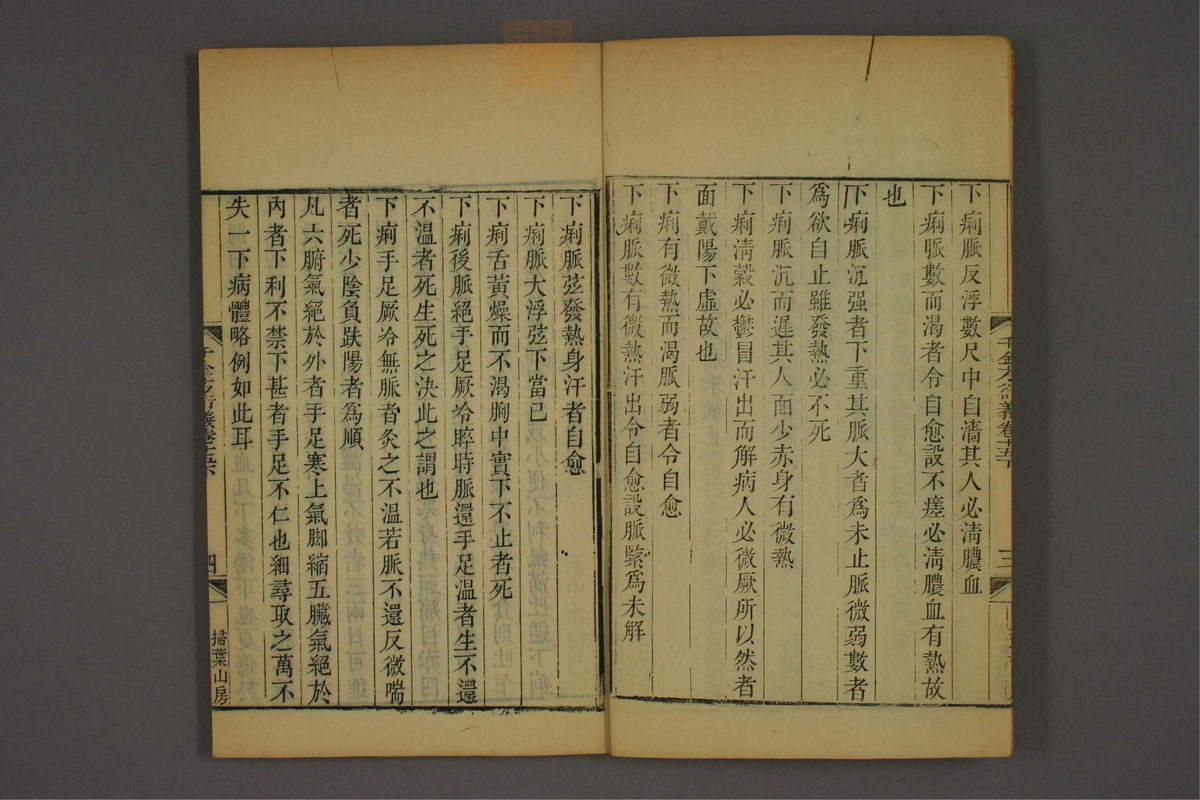 下痢脈反浮數尺中自濇其人必淸膿血
下痢脈數而渴者令自愈設不瘥必淸膿血有熱故
也
下痢脈沉弦者下重其脈大者爲未止脈微弱數者
爲欲自止雖發熱必不死
下痢脈沉而遲其人面少赤身有微熱
下痢淸穀必鬱冒汗出而解病人必微厥所以然者
面戴陽下虛故也
下痢有微熱而渴脈弱者令自愈
下痢脈數有微熱汗出令自愈設脈緊爲未解
千金方衍義卷十五下
三
下痢脈弦發熱身汗者自愈
下痢脈大浮弦下當已
下痢舌黃燥而不渴胸中實下不止者死
下痢後脈絕手足厥冷晬時脈還手足溫者生不還
不溫者死生死之決此之謂也
下痢手足厥冷無脈者灸之不溫若脈不還反微喘
者死少陰負趺陽者爲順
凡六腑氣絕於外者手足寒上氣脚縮五臟氣絕於
內者下利不禁下甚者手足不仁也細尋取之萬不
失一下病體略例如此耳
千金方衍義卷十五下
四
掃葉山房